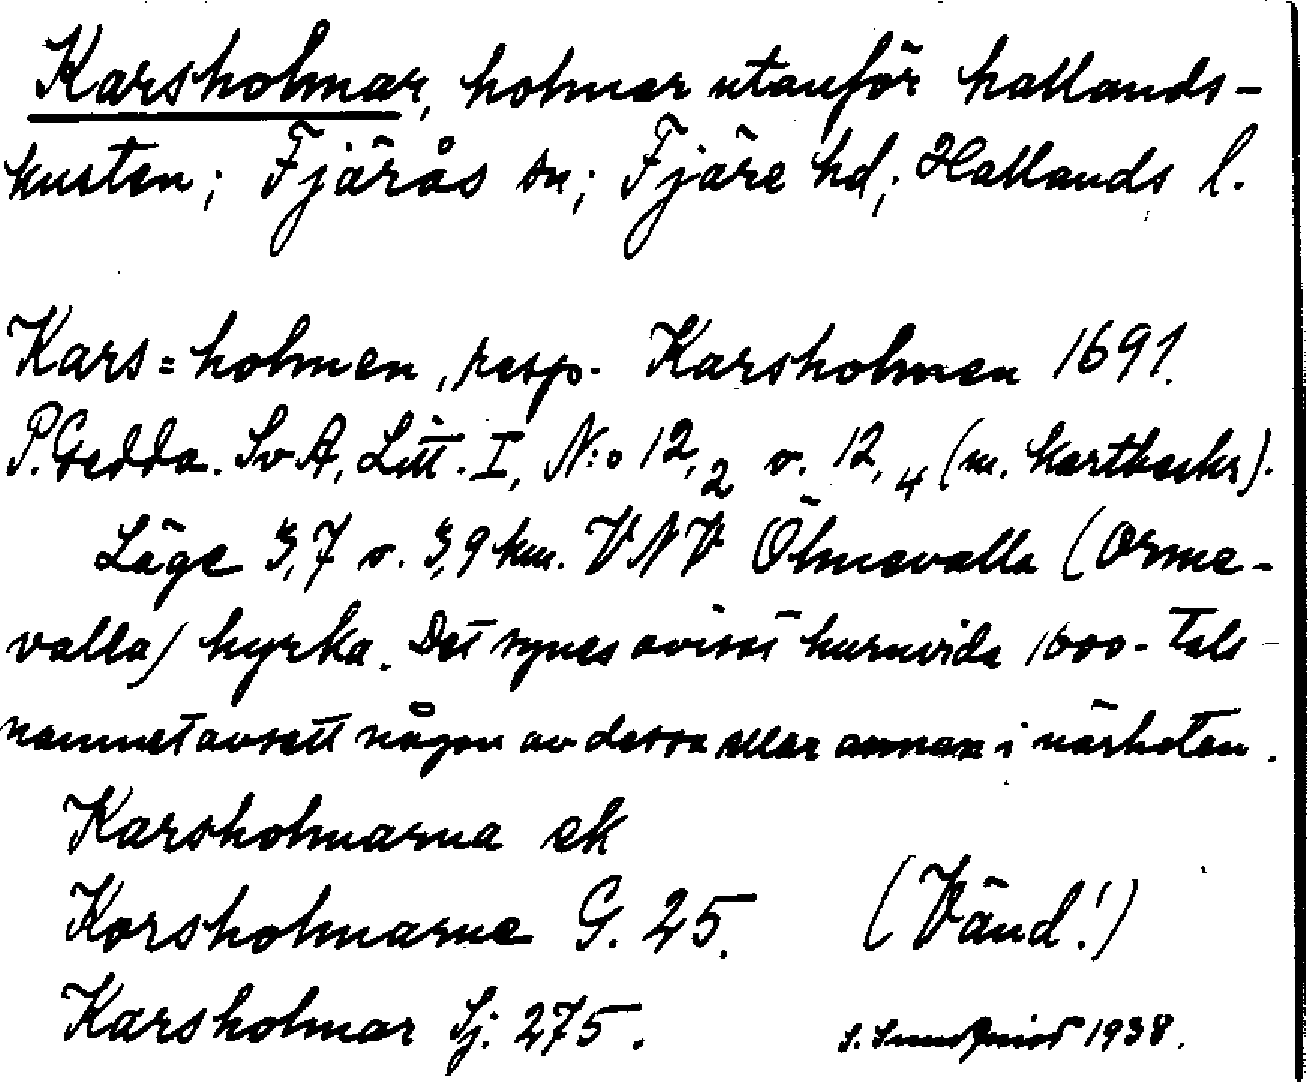 Karsholmar, holmar utanför hallands-
kusten; Fjärås sn; Fjäre hd; Hallands l.
Kars=holmen, resp. Karsholmen 1691.
P. Gedda. SvA, Litt. I, N:o 12,2 o. 12,4 (m. kartbeskr).
Läge 3,7 o. 3,9 km. VNV Ölmevalla (Orme-
valla) kyrka. Det synes ovisst huruvida 1600-tals-
namnet avsett någon av dessa eller annan i närheten.
Karsholmarna ek
Korsholmarne G. 25. (Vänd!)
Karsholmar Sj. 275. 1938.